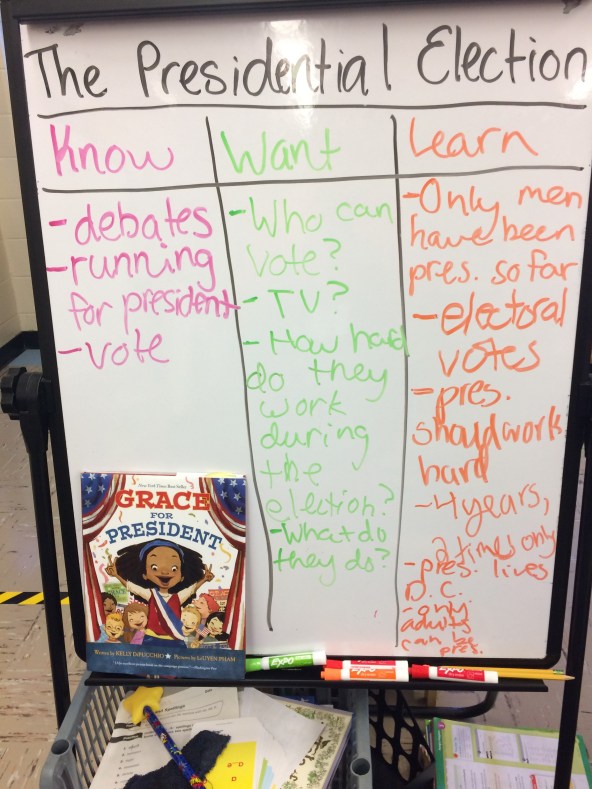 The Presidential Election
Know
- debates
- running
for president
- vote
Want
- Who can
vote?
- TV?
- How hard
do they
work
during
the
election?
- What do
they do?
Learn
- Only men
have been
pres. so far
- electoral
votes
- pres.
should work
hard
- 4 years,
2 times only
- pres. lives
D.C.
- only
adults
can be
pres.
New York Times Best Seller
GRACE
FOR
PRESIDENT
Written by KELLY DiPUCCHIO ★ Pictures by LeUYEN PHAM
EXPO
EXPO
EXPO